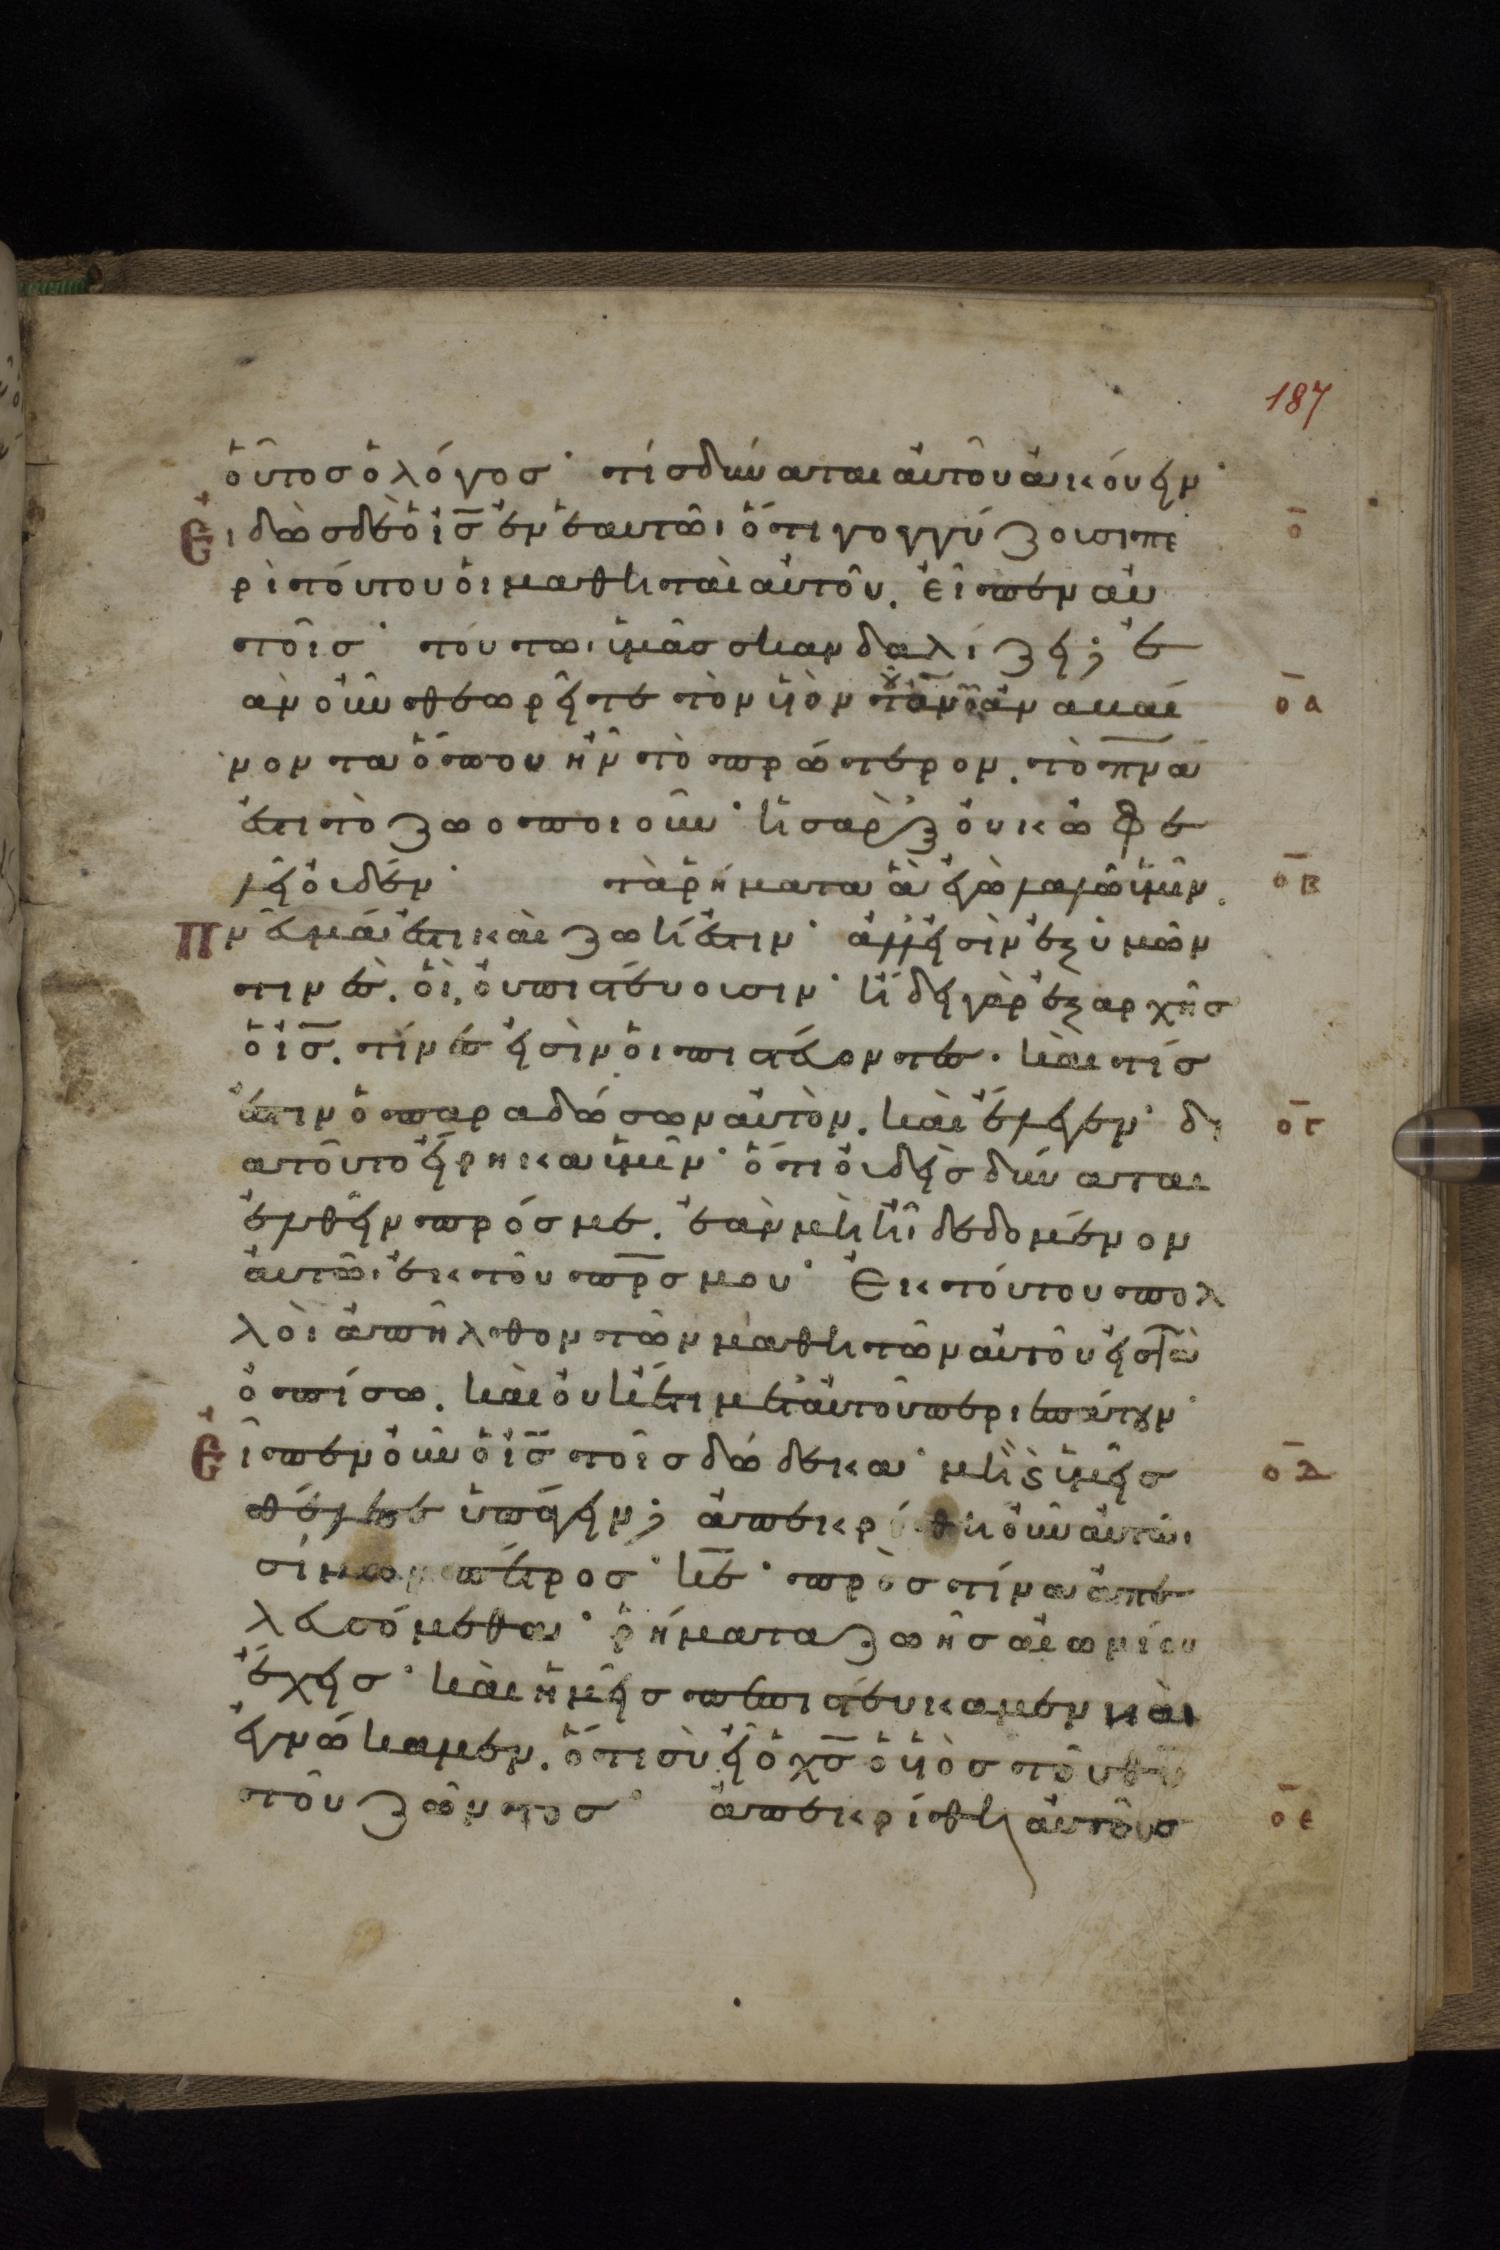 187
οὗτος ὁ λόγος· τίς δύναται αὐτοῦ ἀκούειν·
Εἰδὼς δὲ ὁ ις ἐν ἑαυτῶι ὅτι γογγύζουσι πε
ο
ρὶ τούτου οἱ μαθηταὶ αὐτοῦ. εἶπεν αὐ
τοῖς· τοῦτωι ὑμᾶς σκανδαλίζει; ἐ
ὰν οὖν θεωρῆτε τὸν υἱὸν τοῦ ανου ἀναβαί
οα
νοντα ὅπου ἦν τὸ πρώτερον. τὸ πνα
ἐστι τὸ ζωοποιοῦν· ἡ σὰρξ οὐκ ὠφε
λεῖ οὐδέν· τὰ ῥήματα ἃ ἐγὼ λαλῶ ὑμῖν.
οβ
πνεῦμά ἐστι καὶ ζωή ἐστιν· ἀλλ' εἰσὶν ἐξ ὑμῶν
τινὲς. οἳ οὐ πιστεύουσιν· ἤδει γὰρ ἐξ αρχῆς
ὁ ις. τίνες εἰσὶν οἱ πιστεύοντες. καὶ τίς
ἐστιν ὁ παραδώσων αὐτὸν. καὶ ἔλεγεν· δι
ογ
ατοῦτο εἴρηκα ὑμῖν· ὅτι οὐδεὶς δύναται
ἐλθεῖν πρός με. ἐὰν μὴ ἦι δεδομένον
αὐτῶι ἐκ τοῦ πρς μου· Ἐκ τούτου πολ
λοὶ ἀπῆλθον τῶν μαθητῶν αὐτοῦ εἰς τὰ
ὀπίσω. καὶ οὐκέτι μετ' αὐτοῦ περιεπάτουν·
Εἶπεν οὖν ὁ ις τοῖς δώδεκα· μὴ καὶ ὑμεῖς
οδ
θέλετε ὑπάγειν; ἀπεκρίθη οὖν αὐτῶι
σίμων πέτρος· κε· πρὸς τίνα ἀπε
λευσόμεθα· ῥήματα ζωῆς αἰωνίου
ἔχεις· καὶ ἡμεῖς πεπιστεύκαμεν καὶ
ἐγνώκαμεν. ὅτι σὺ εἶ ὁ χς ὁ υἱὸς τοῦ θυ
τοῦ ζῶντος· ἀπεκρίθη αὐτοῖς
οε